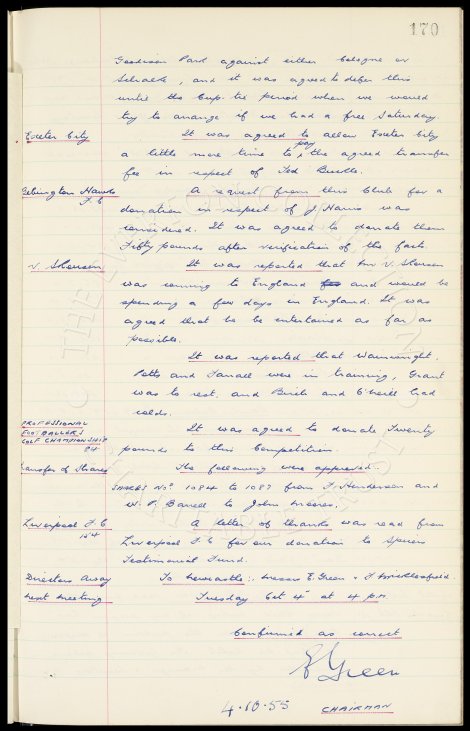 170
Goodison Park against either Cologne or
Schalke, and it was agreed to defer this
until the Cup-tie period when we would
try to arrange if we had a free Saturday.
Exeter City It was agreed to allow Exeter City
a little more time to pay the agreed transfer
fee in respect of Ted Buckle.
Bebington Hawks F.C A request from this Club for a
donation in respect of J Harris was
considered. It was agreed to donate them
Fifty pounds after verification of the facts
It was reported that Mr V.
was coming to England and would be
spending a few days in England. It was
agreed that he be entertained as far as
possible.
It was reported that Wainwright,
Potts and Farrall were in training, Grant
was to rest. and Birch and O'Neill had
colds.
PROFESSIONAL
FOOTBALLERS
GOLF CHAMPIONSHIP It was agreed to donate Twenty
pounds to this Competition.
Transfer of Shares The following were approved.
SHARES Nos. 1084 to 1087 from F. Henderson and
W. P. Barrell to John Moores.
Liverpool F.C. A letter of thanks was read from
Liverpool F.C for our donation to Spicers
Testimonial Fund.
Directors Away To Newcastle: Messrs E. Green &
Next Meeting Tuesday Oct 4th at 4 PM
Confirmed as correct
E Green
4.10.55 CHAIRMAN